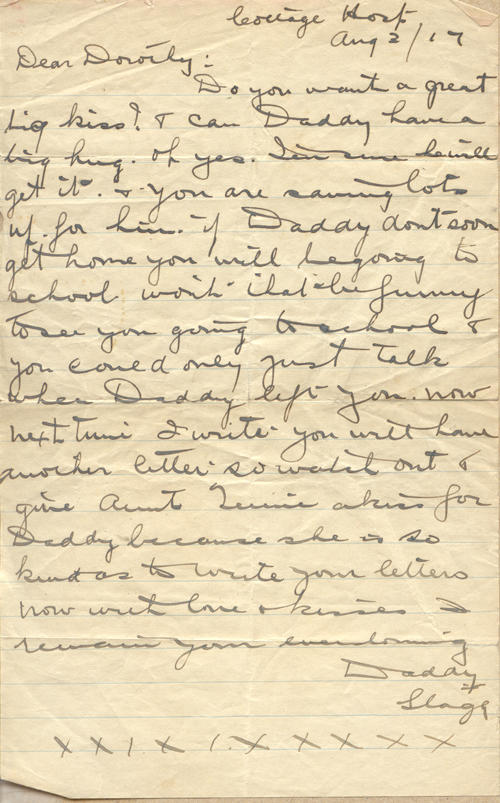 Cottage Hosp
Aug 2/17
Dear Dorothy:
Do you want a great
big kiss? & can Daddy have a
big hug. Oh yes. I'm sure he will
get it. & you are saving lots
up for him. if Daddy dont soon
get home you will be going to
school wont that be funny
to see you going to school &
you could only just talk
when Daddy left you. now
next time I write you will have
another letter so watch out &
give Aunt Tennie a kiss for
Daddy because she is so
kind as to write your letters
now with love & kisses I
remain your ever loving
Daddy
Slagg
x x 1 x 1. x x x x x x